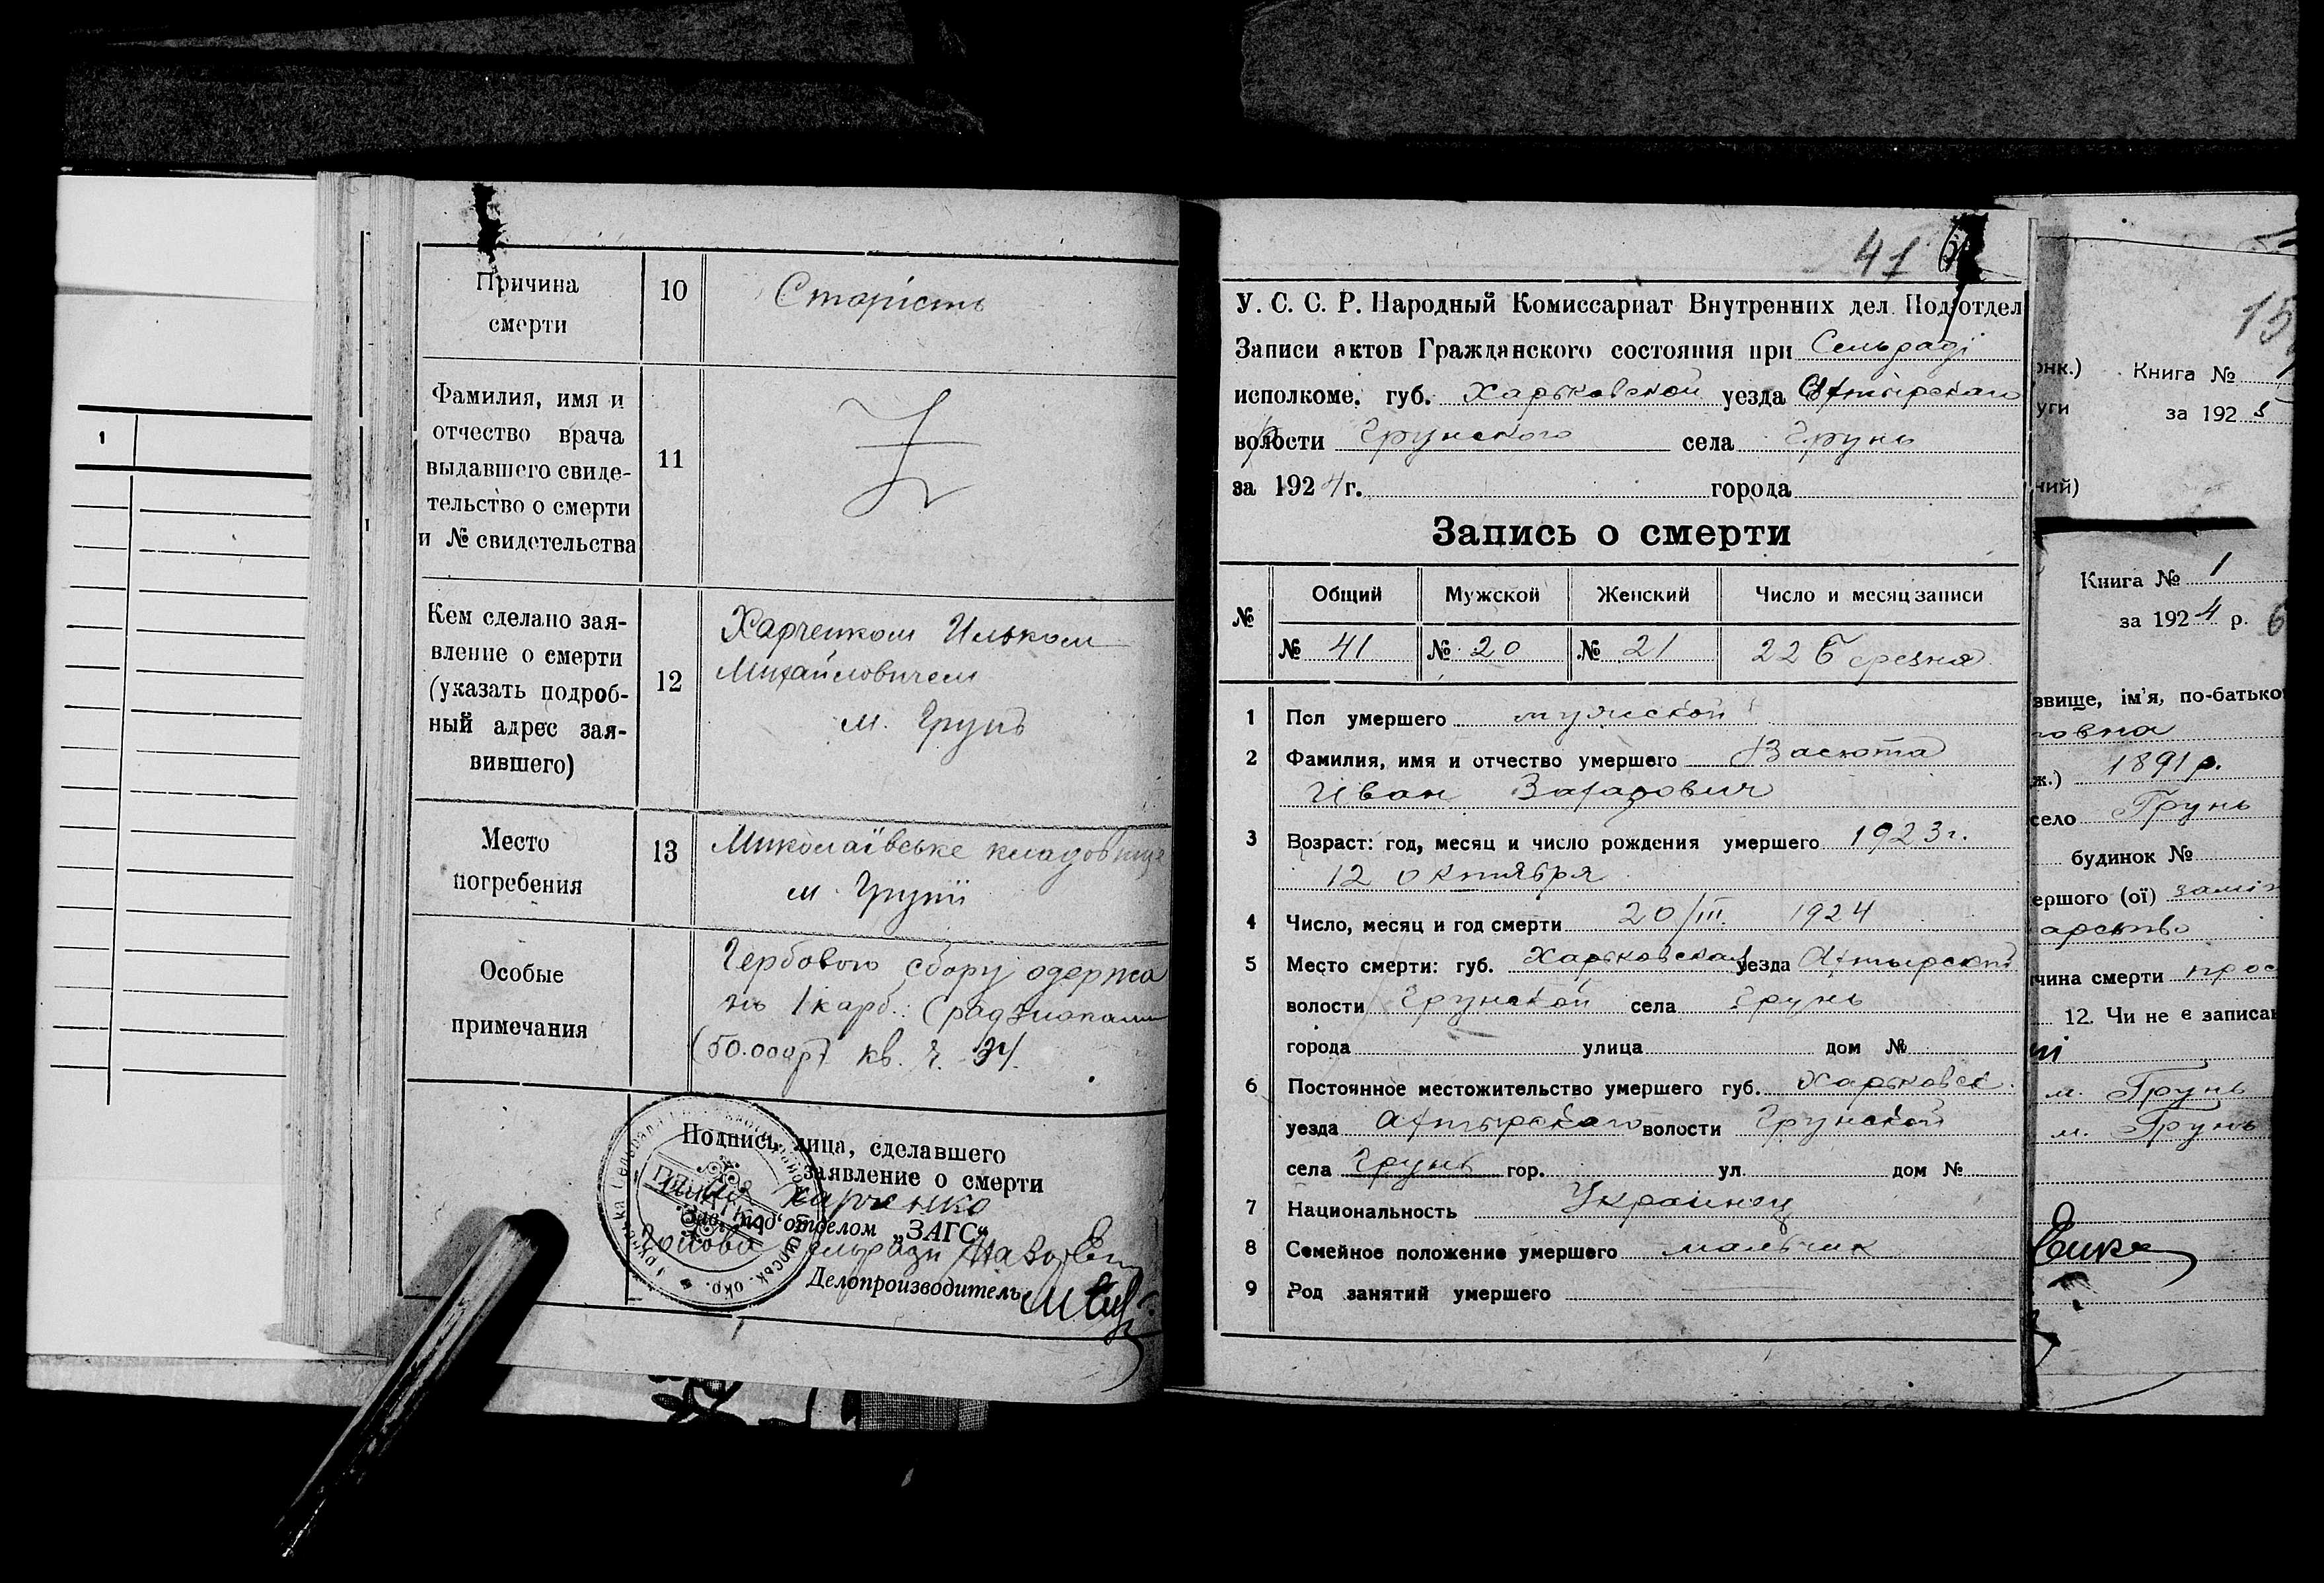 1
Причина
смерти
10
Старість
Фамилия, имя и
отчество врача
выдавшего свиде-
тельство о смерти
и № свидетельства
11
Кем сделано зая-
вление о смерти
(указать подроб-
ный адрес зая-
вившего)
12
Харченком Ильком
Михайловичем
м. Грунь
Место
погребения
13
Миколаївське кладовище
м. Груні
Особые
примечания
Гербового сбору одержа
но 1 карб. (радзнаками
(50.000р) кв. ч. 34.
Подпись лица, сделавшего
заявление о смерти
Харченко
Зав. под'отделом „ЗАГС“
Голова Сельради
Делопроизводитель
41
У. С. С. Р. Народный Комиссариат Внутренних дел Под'отдел
Записи актов Гражданского состояния при Сельраді
исполкоме. губ. Харьковской уезда Ахтырского
волости Грунского села Грунь
за 1924 г. города
Запись о смерти
№ Общий Мужской Женский Число и месяц записи
№ 41 № 20 № 21 22 Березня
1 Пол умершего мужской
2 Фамилия, имя и отчество умершего Васюта
Иван Захарович
3 Возраст: год, месяц и число рождения умершего 1923 г.
12 октября
4 Число, месяц и год смерти 20/III. 1924
5 Место смерти: губ. Харьковская уезда Ахтырский
волости Грунской села Грунь
города улица дом №
6 Постоянное местожительство умершего губ. Харьковск.
уезда Ахтырского волости Грунской
села Грунь гор. ул. дом №
7 Национальность Украинец
8 Семейное положение умершего мальчик
9 Род занятий умершего
15
онк.) Книга №
уги за 1925
ний)
Книга № 1
за 1924 р. 6
звище, ім'я, по-батько
овна
ж.) 1891 р.
село Грунь
будинок №
ершого (ої) заміж
арство
чина смерти прос
12. Чи не є записан
м. Грунь
м. Грунь